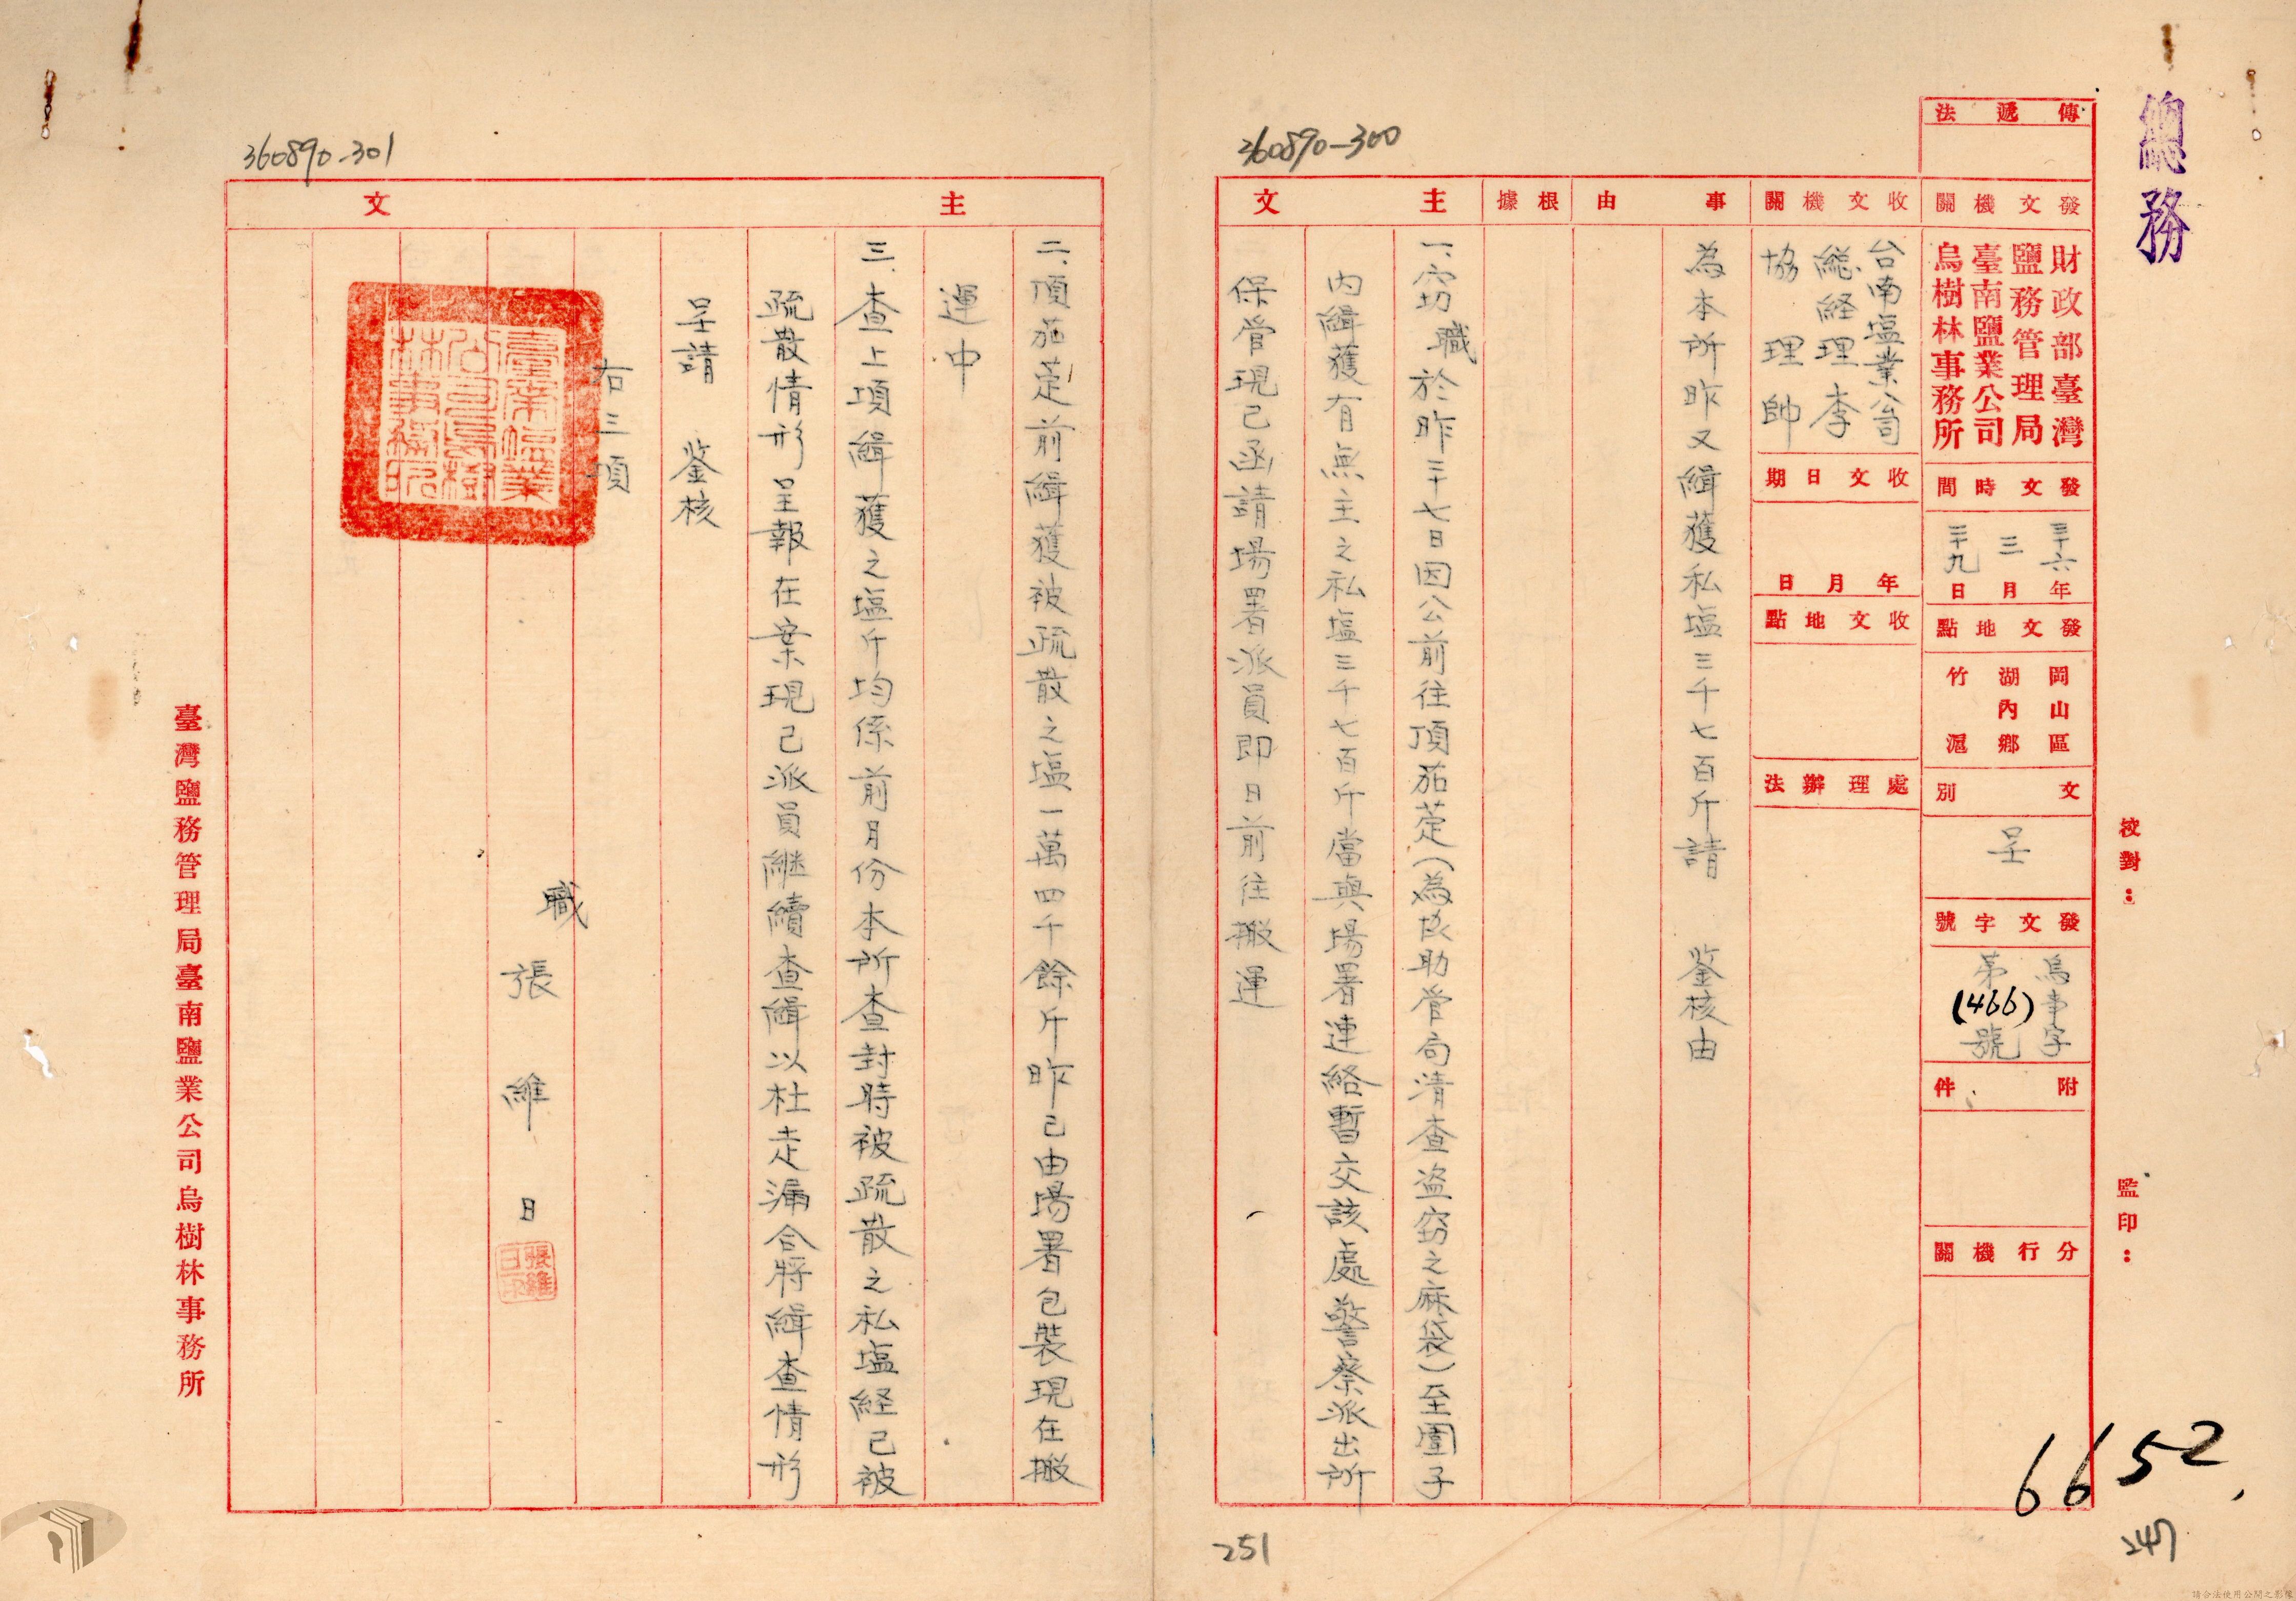 總務
傳遞法
發文機關
財政部臺灣
鹽務管理局
臺南鹽業公司
烏樹林事務所
發文時間
三十六年
三月
二十九日
發文地點
岡山區
湖內鄉
竹滬
文別
呈
發文字號
烏事字
第(466)號
附件
分行機關
校對：
監印：
收文機關
台南塩業公司
総経理李
協理帥
收文日期
年月日
收文地點
處理辦法
事由
為本所昨又緝獲私塩三千七百斤請 鉴核由
根據
主文
一、窃職於昨二十七日因公前往頂茄萣(為協助管局清查盗窃之麻袋)至圍子
內緝獲有無主之私塩三千七百斤當與場署連絡暫交該處警察派出所
保管現已函請場署派員即日前往搬運
360890-300
6652
247
251
360890-301
主文
二、頂茄萣前緝獲被疏散之塩一萬四千餘斤昨已由場署包裝現在搬
運中
三、查上項緝獲之塩斤均係前月份本所查封時被疏散之私塩経已被
疏散情形呈報在案現已派員継續查緝以杜走漏合將緝查情形
呈請 鉴核
右三項
職 張維日
張維日印
臺南塩業公司烏樹林事務所
臺灣鹽務管理局臺南鹽業公司烏樹林事務所
請合法使用公開之影像